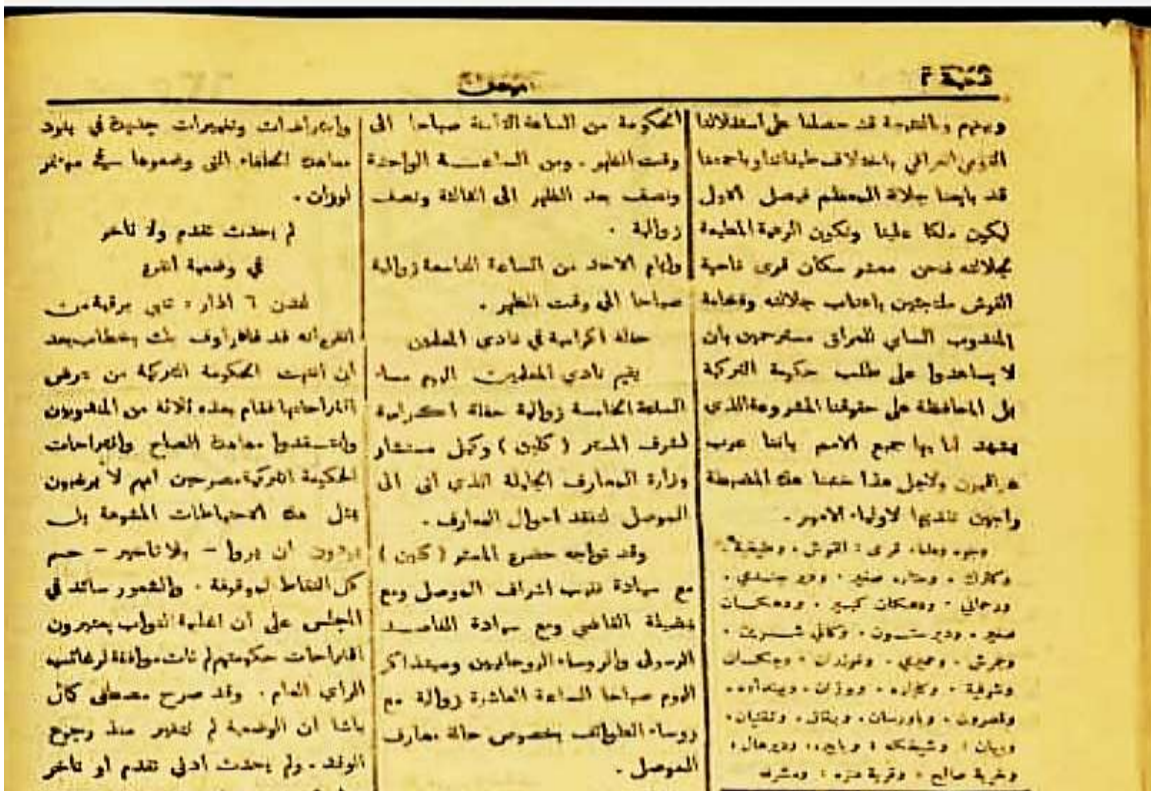 صحيفة ٢
الموصل
وبينهم وبالنتيجة قد حصلنا على استقلالنا
القومي العراقي باختلاف طبقاتنا وباجمعنا
قد بايعنا جلالة المعظم فيصل الاول
ليكون ملكا علينا ونكون الرعية المطيعة
لجلالته فنحن معشر سكان قرى ناحية
القوش ملتجئين باعتاب جلالته وفخامة
المندوب السامي للعراق مسترحمين بان
لا يساعدوا على طلب حكومة التركية
بل المحافظة على حقوقنا المشروعة الذي
يشهد لنا بها جميع الامم باننا عرب
عراقيون ولاجل هذا ختمنا هذه المضبطة
راجين تقديمها لاولياء الامور.
وجوه وعلماء قرى : القوش ،
صغير ،
ودهكان كبير ، ودهكان
صغير ،
وجرش ،
وشرفية ،
وبيبان ؛
وخربة صالح ؛ وقرية
الحكومة من الساعة الثامنة صباحا الى
وقت الظهر . ومن الساعة الواحدة
ونصف بعد الظهر الى الثالثة ونصف
زوالية .
وايام الاحد من الساعة التاسعة زوالية
صباحا الى وقت الظهر .
حفلة اكرامية في نادي المعلمين
يقيم نادي المعلمين اليوم مساء
الساعة الخامسة زوالية حفلة اكرامية
لشرف المستر ( كلين ) وكيل مستشار
وزارة المعارف الجليلة الذي اتى الى
الموصل لتفقد احوال المعارف .
وقد تواجه حضرة المستر ( كلين )
مع سيادة نقيب اشراف الموصل ومع
فضيلة القاضي ومع سيادة القاصد
الرسولي والروساء الروحانيين وسيتذاكر
اليوم صباحا الساعة العاشرة زوالية مع
روساء الطوائف بخصوص حالة معارف
الموصل .
واقتراحات وتغييرات جديدة في بنود
معاهدة الحلفاء التي وضعوها في مؤتمر
لوزان .
لم يحدث تقدم ولا تأخر
في وضعية انقره
لندن ٦ اذار :
انقره انه قد رأوف بك بخطاب بعد
ان انتهت الحكومة التركية من عرض
اقتراحاتها فقام بعده ثلاثة من المندوبين
وانتقدوا معاهدة الصلح واقتراحات
الحكومة التركية مصرحين انهم لا يرغبون
بمثل هذه الاحتياطات المشوهة بل
يريدون ان يروا – بلا تأخير – حسم
كل النقاط الموقوفة . والشعور سائد في
المجلس على أن اغلبية النواب يعتبرون
اقتراحات حكومتهم لم تأت موافقة لرغائب
الراي العام . وقد صرح مصطفى كمال
باشا ان الوضعية لم تتغير منذ رجوع
الوفد . ولم يحدث ادنى تقدم او تأخر